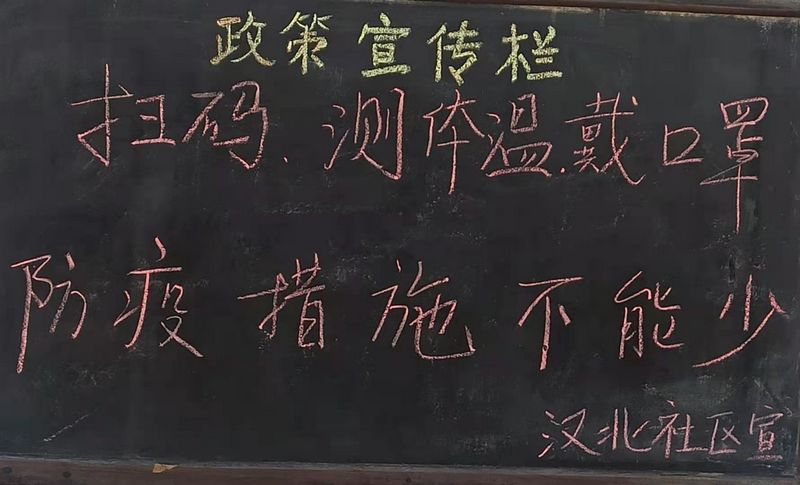 政策宣传栏
扫码、测体温、戴口罩
防疫措施不能少
汉北社区宣